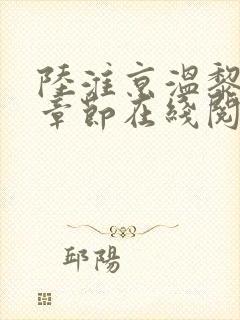 陸淮京溫黎
章節在綫閱
邱陽